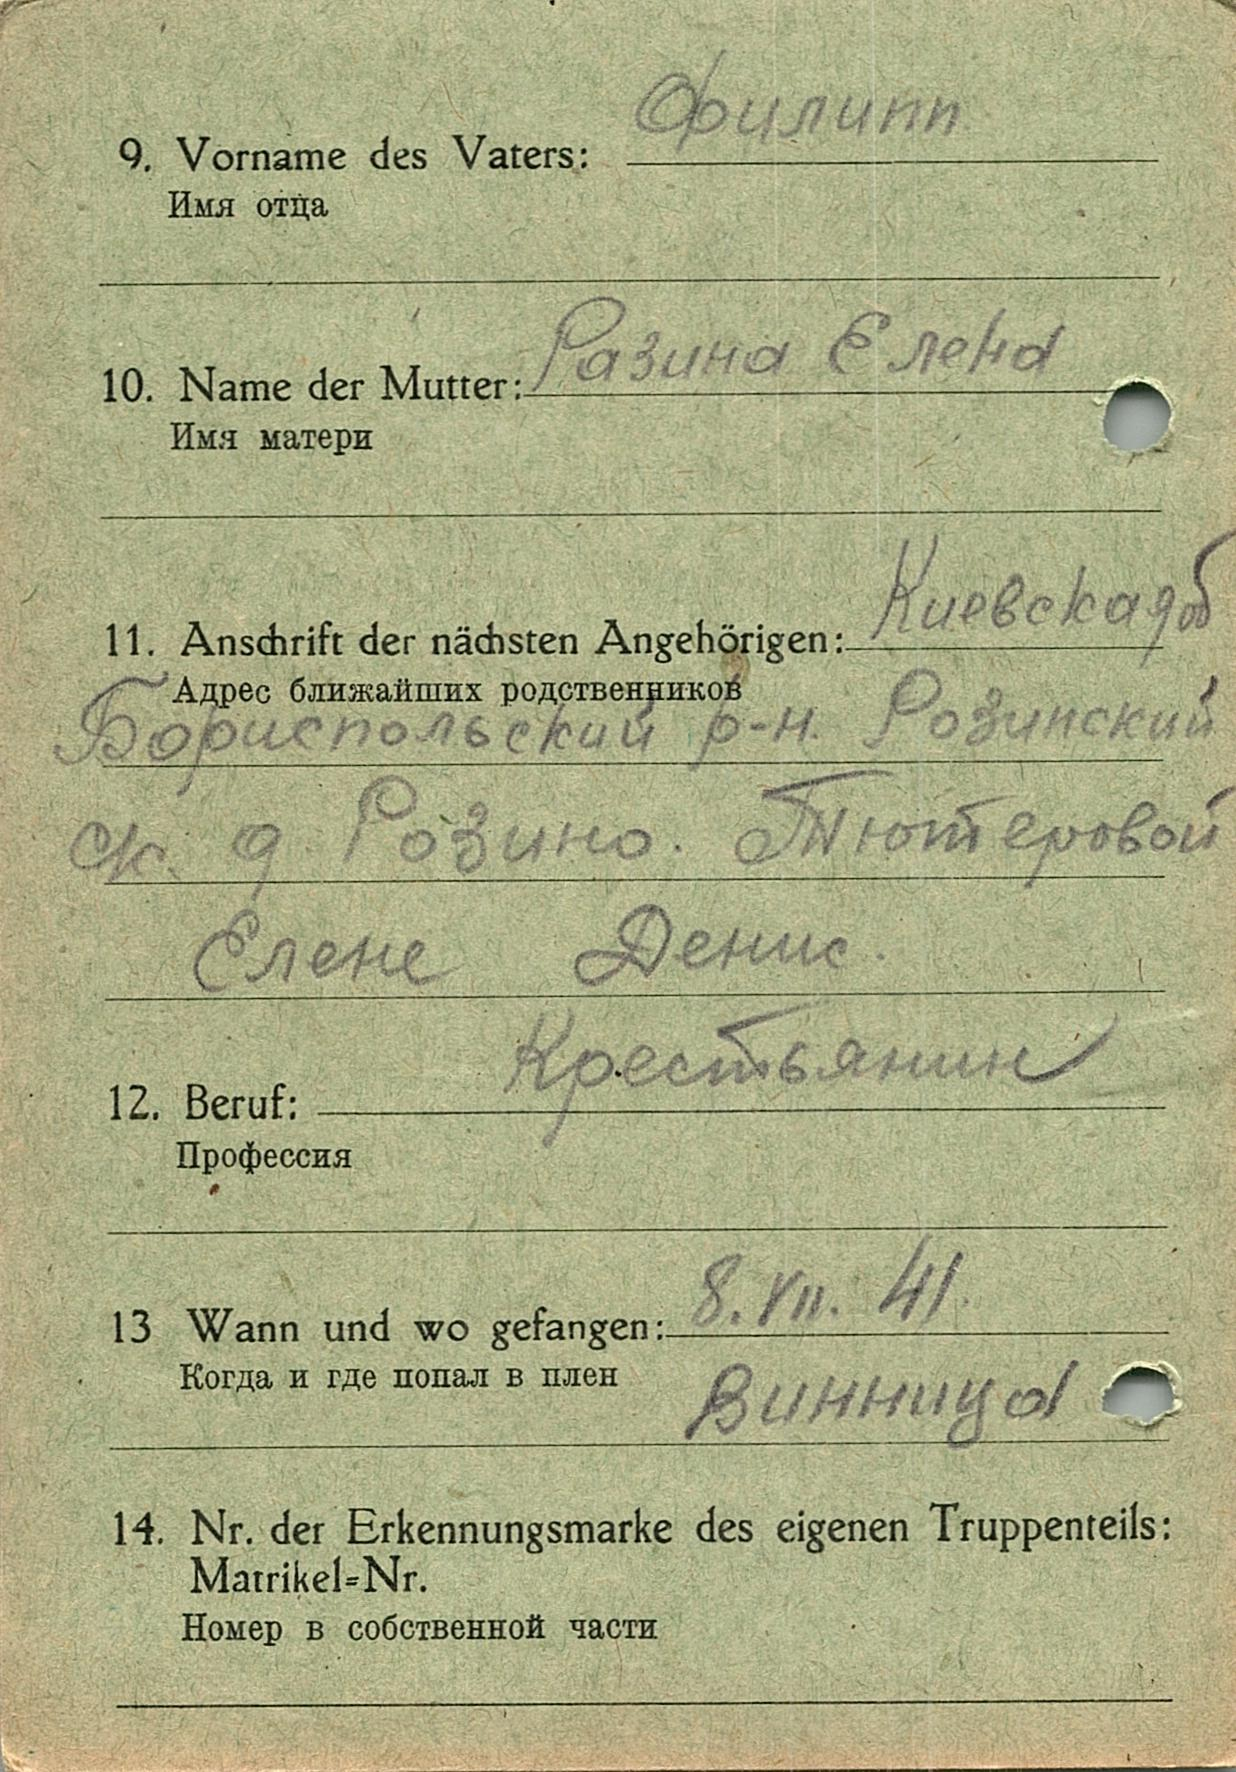 Филипп
9. Vorname des Vaters:
Имя отца
Разина Елена
10. Name der Mutter:
Имя матери
Киевская об
11. Anschrift der nächsten Angehörigen:
Адрес ближайших родственников
Бориспольский р-н. Розинский
ск. д Розино. Тютеровой
Елене Денис.
Крестьянин
12. Beruf:
Профессия
8. VII. 41.
13 Wann und wo gefangen:
Когда и где попал в плен
Винница
14. Nr. der Erkennungsmarke des eigenen Truppenteils:
Matrikel=Nr.
Номер в собственной части